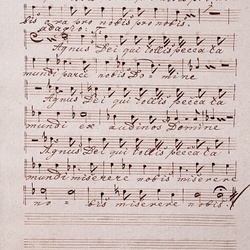 bis ora pro nobis pro nobis.
adagio
Agnus Dei qui tollis peccata
mundi parce nobis Do mine
Agnus Dei qui tollis peccata
mundi ex audi nos Domine
Agnus Dei qui tollis peccata
mundi miserere nobis miserere
no bis miserere nobis.